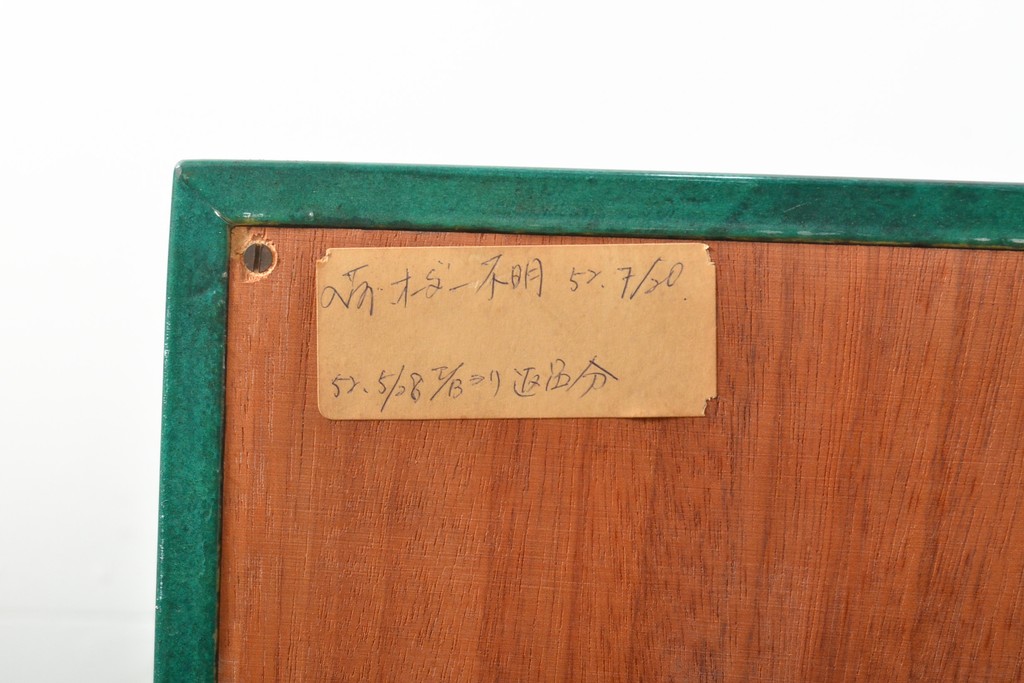 オーダー不明 52.7/20
52.5/28 I/Bヨリ返品分